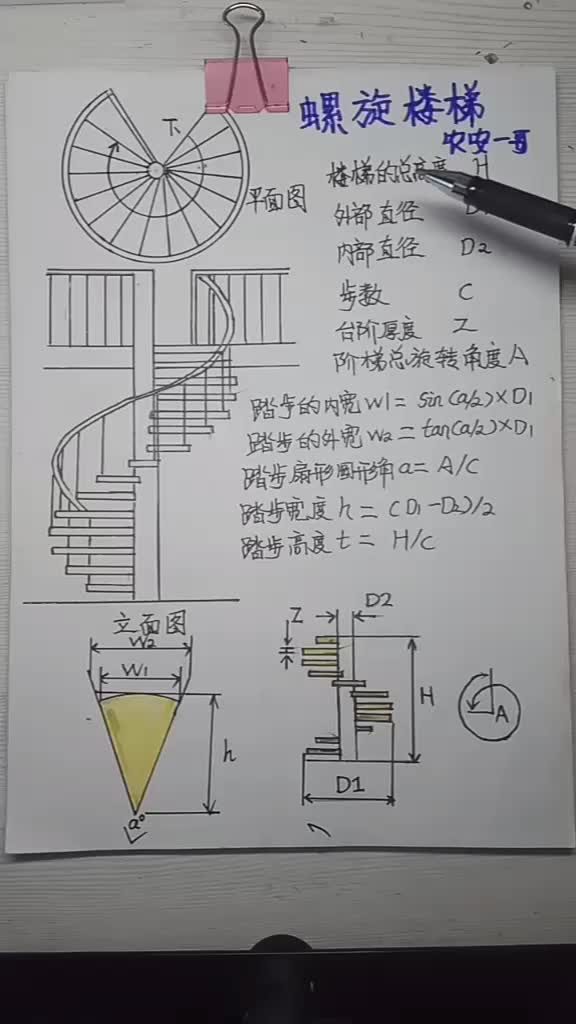 螺旋楼梯
农安一哥
楼梯的总高度 H
外部直径
内部直径 D2
步数 C
台阶厚度 Z
阶梯总旋转角度A
踏步的内宽W1= sin(a/2)×D1
踏步的外宽W2= tan(a/2)×D1
踏步扇形圆形角a= A/C
踏步宽度h= (D1-D2)/2
踏步高度t= H/C
下
平面图
立面图
W2
W1
h
a°
Z
D2
H
D1
A